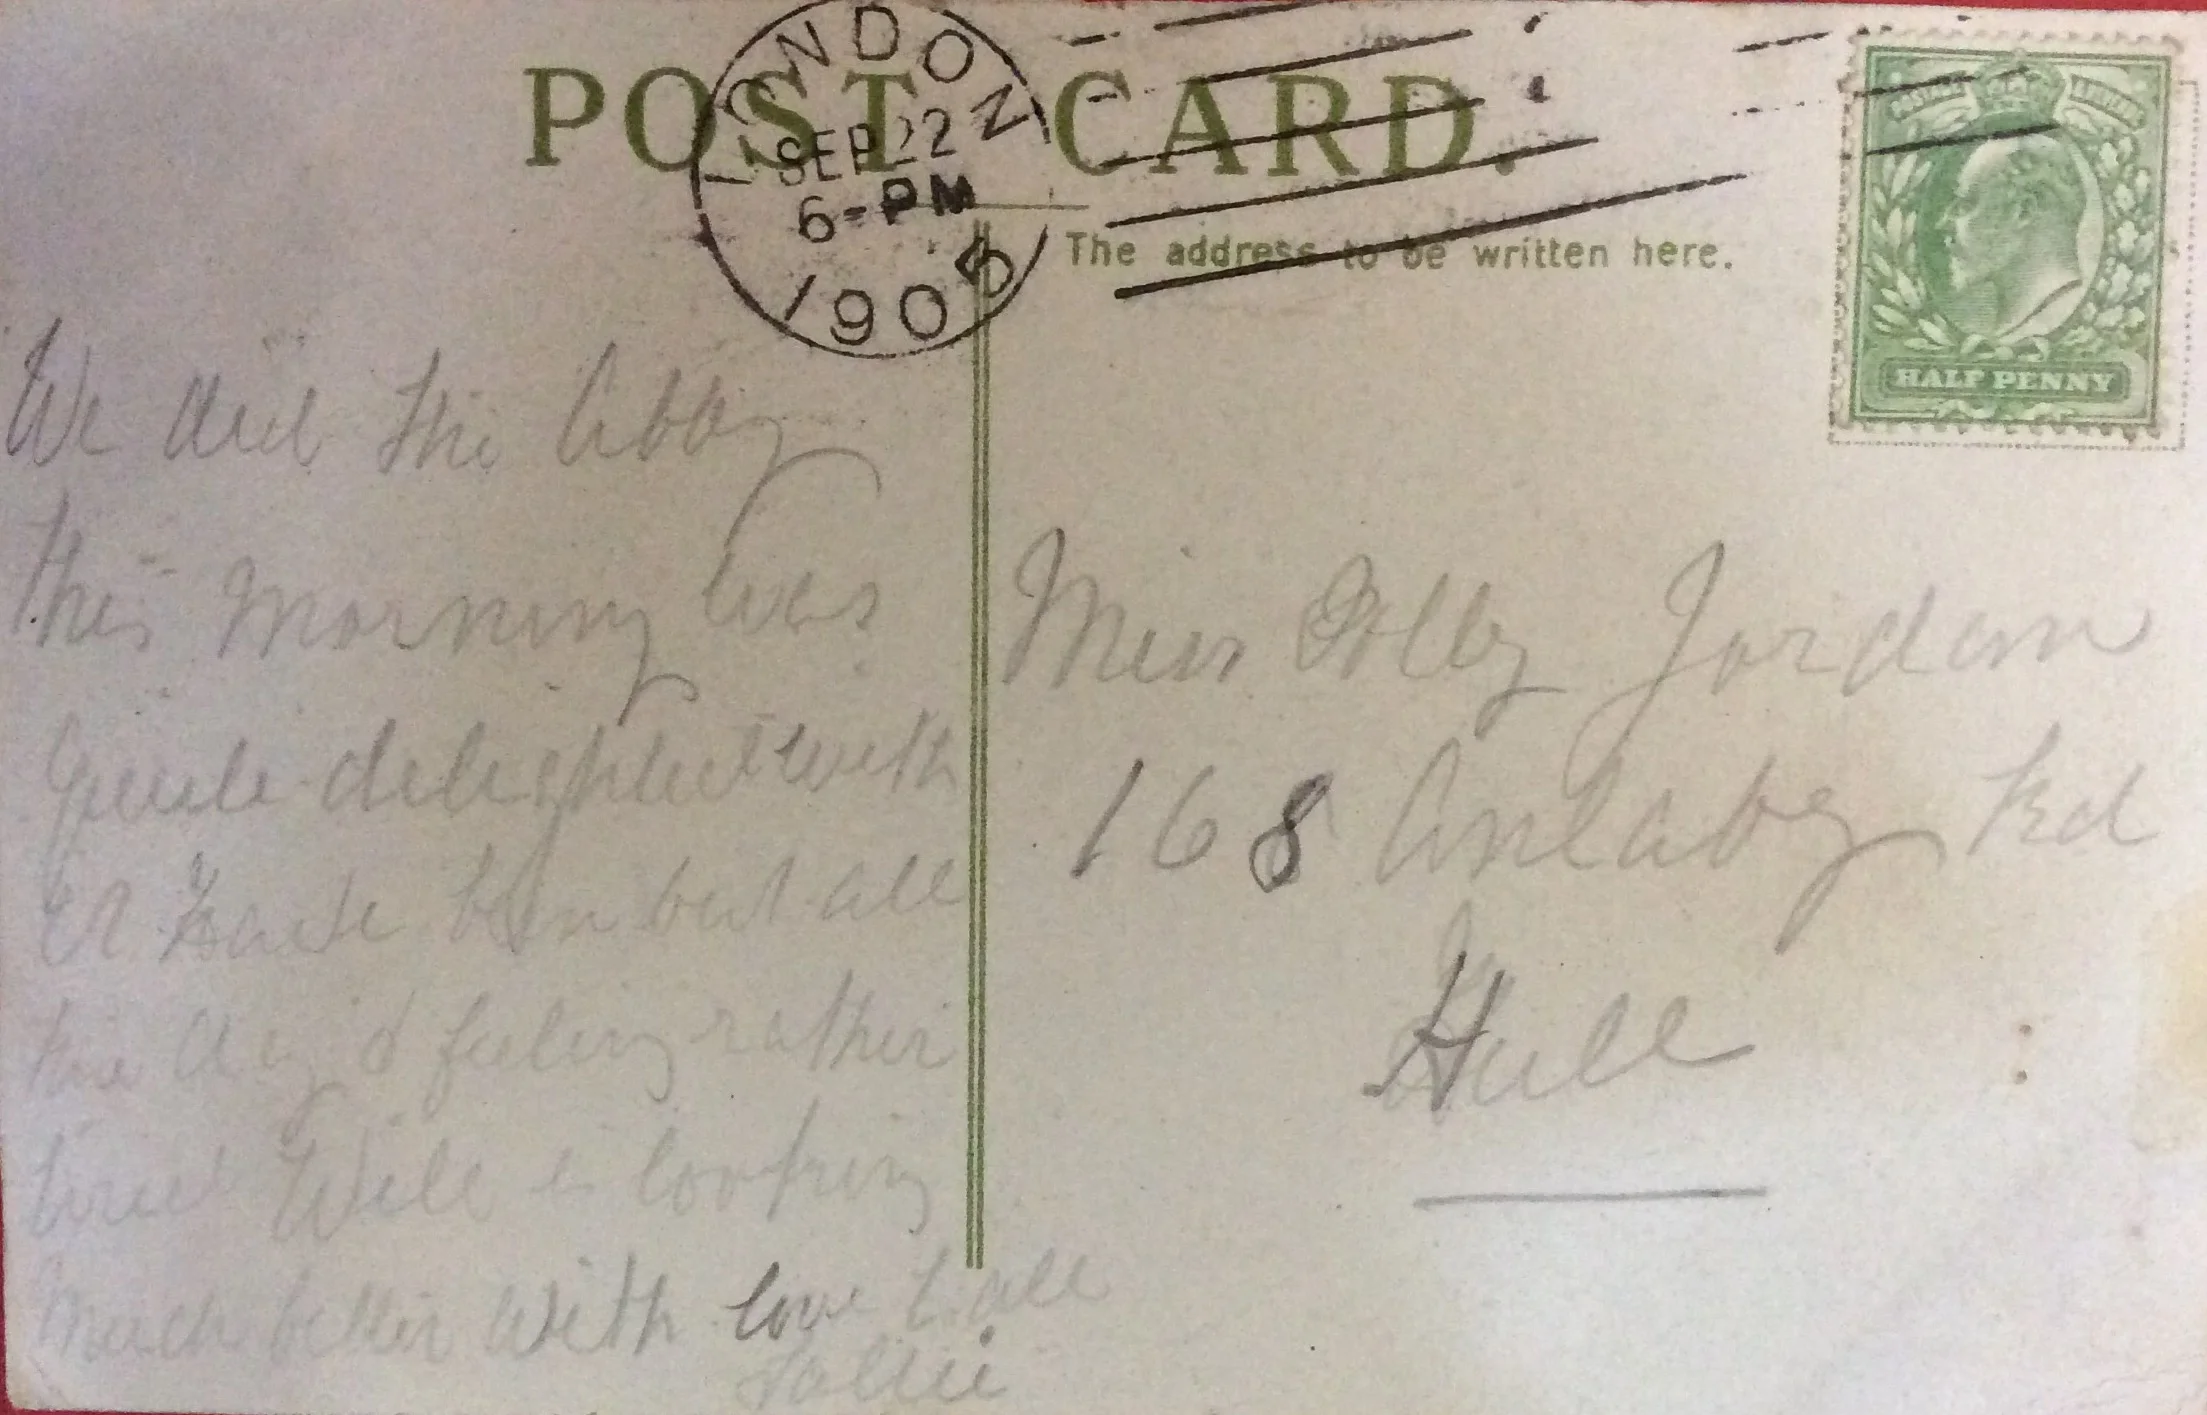 POST CARD.
LONDON
SEP 22
6-PM
1905
The address to be written here.
HALF PENNY
We did the Abby
this morning was
quite delighted with
it Have been out all
the day & feeling rather
tired Will is looking
much better with love to all
Tollie
Miss Dolly Jordan
168 Anlaby Rd
Hull